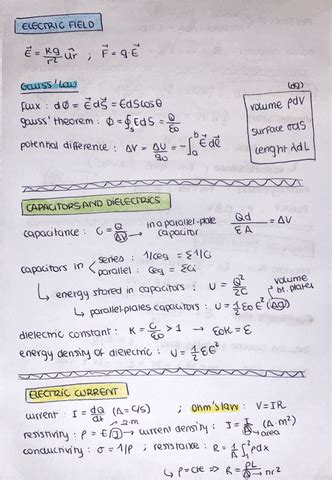 ELECTRIC FIELD
E⃗ = Kq/r² u⃗r ; F⃗ = q·E⃗
Gauss' Law
dq)
flux : dΦ = E⃗ dS⃗ = EdScosθ
volume ρdV
gauss' theorem : Φ = ∮s EdS = Q/ε0
surface σdS
lenght λdL
potential difference : ΔV = ΔU/q0 = -∫a^b E⃗ dl⃗
CAPACITORS AND DIELECTRICS
capacitance : C = Q/ΔV → in a parallel-plate capacitor Qd/εA = ΔV
capacitors in
series : 1/Ceq = Σ1/C
parallel : Ceq = ΣCi
↳ energy stored in capacitors : U = Q²/2C
volume bt. plates
↳ parallel-plates capacitors : U = 1/2 ε0 E² (Ad)
dielectric constant : K = C/C0 > 1 → ε0K = ε
energy density of dielectric : U = 1/2 εE²
ELECTRIC CURRENT
current : I = dQ/dt (A = C/s) ; Ohm's law : V = IR
resistivity : ρ = E/J → current density : J = I/A (A·m²)
Ω·m
area
conductivity : σ = 1/ρ ; resistance : R = 1/A ∫1^2 ρdx
↳ ρ = cte ⇒ R = ρL/A → πr²